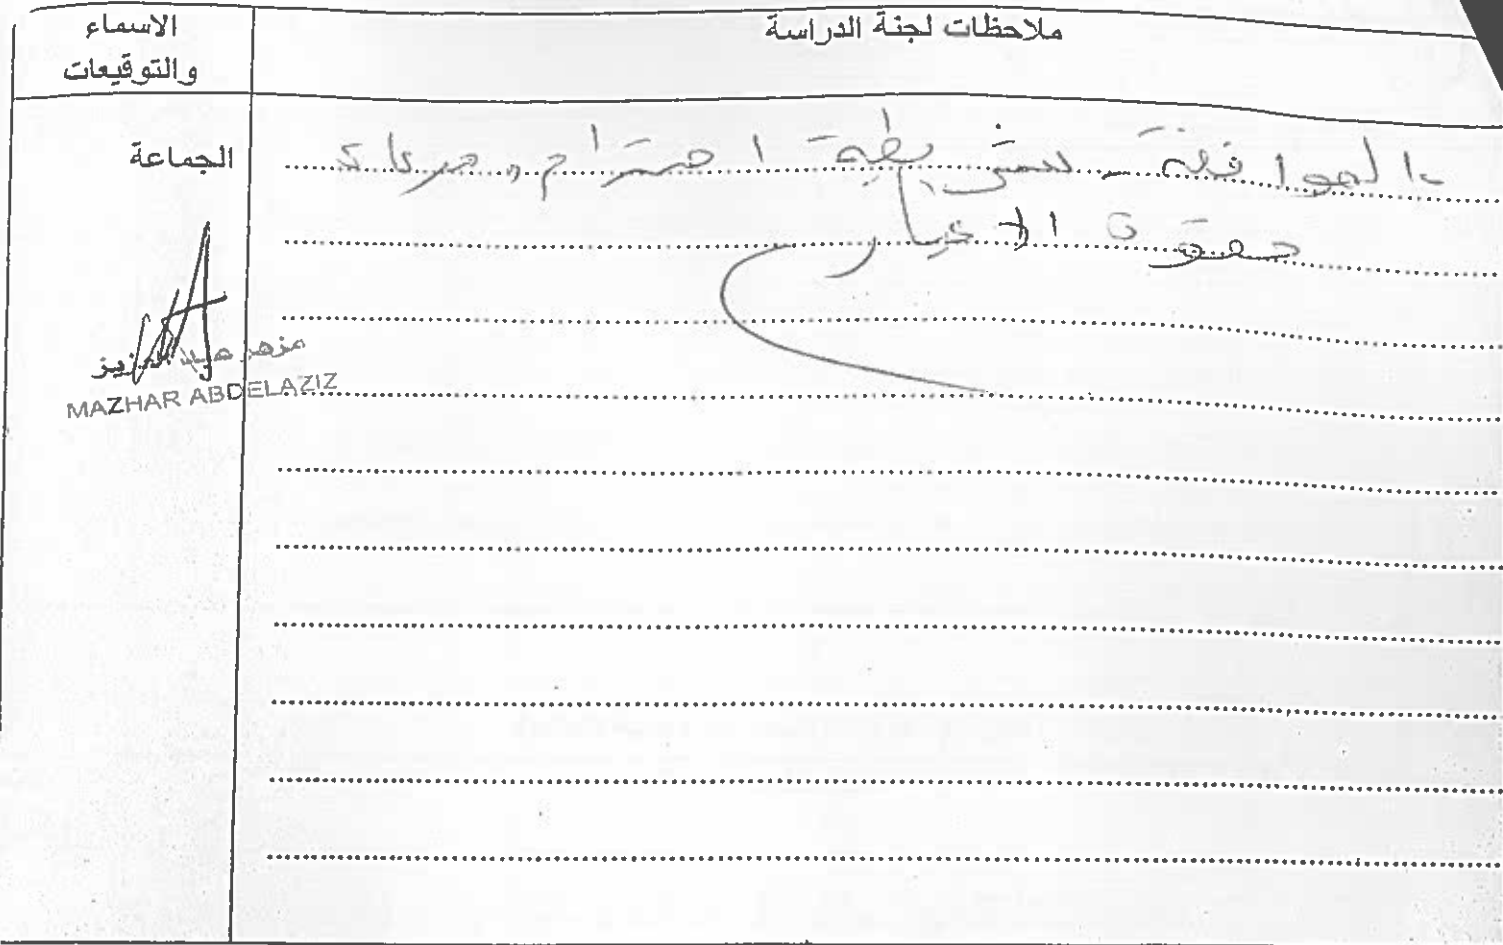 ملاحظات لجنة الدراسة
الاسماء
والتوقيعات
الموافقة شريطة احترام
حقوق الاغيار
الجماعة
مزهر عبد العزيز
MAZHAR ABDELAZIZ